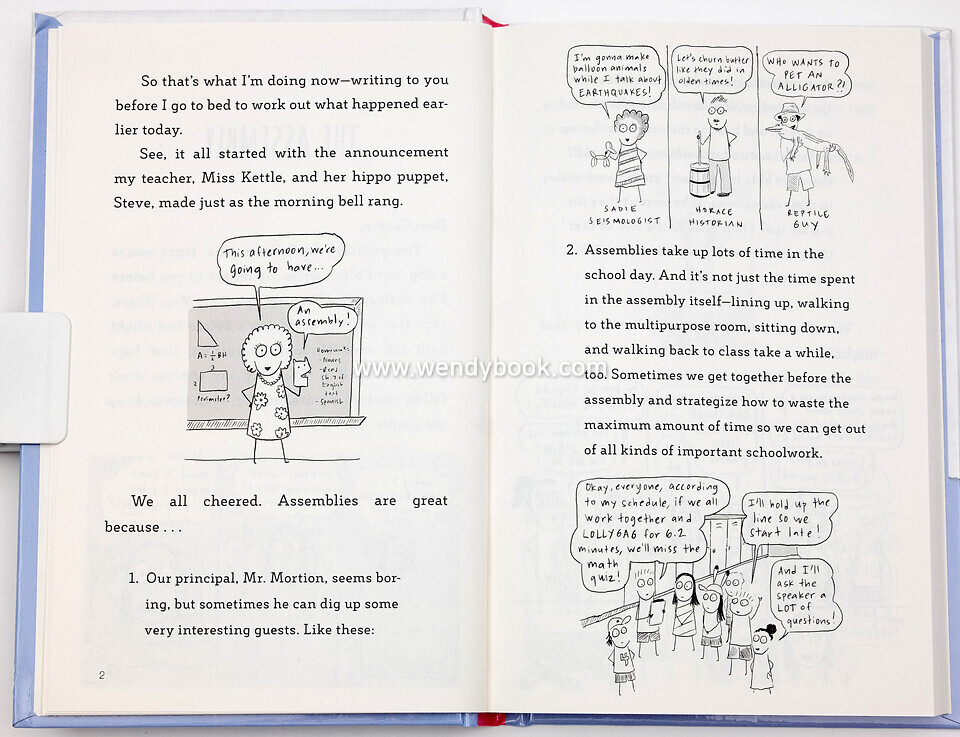 So that's what I'm doing now—writing to you
before I go to bed to work out what happened ear-
lier today.
See, it all started with the announcement
my teacher, Miss Kettle, and her hippo puppet,
Steve, made just as the morning bell rang.
This afternoon, we're
going to have...
An
assembly!
A = ½ BH
3
2
Perimeter?
Homework:
- Nouns
English
text
- Spanish
We all cheered. Assemblies are great
because . . .
1. Our principal, Mr. Mortion, seems bor-
ing, but sometimes he can dig up some
very interesting guests. Like these:
2
I'm gonna make
balloon animals
while I talk about
EARTHQUAKES!
SADIE
SEISMOLOGIST
Let's churn butter
like they did in
olden times!
HORACE
HISTORIAN
WHO WANTS TO
PET AN
ALLIGATOR?!
REPTILE
GUY
2. Assemblies take up lots of time in the
school day. And it's not just the time spent
in the assembly itself—lining up, walking
to the multipurpose room, sitting down,
and walking back to class take a while,
too. Sometimes we get together before the
assembly and strategize how to waste the
maximum amount of time so we can get out
of all kinds of important schoolwork.
Okay, everyone, according
to my schedule, if we all
work together and
LOLLYGAG for 6.2
minutes, we'll miss the
math
quiz!
I'll hold up the
line so we
start late!
And I'll
ask the
speaker a
LOT of
questions!
www.wendybook.com